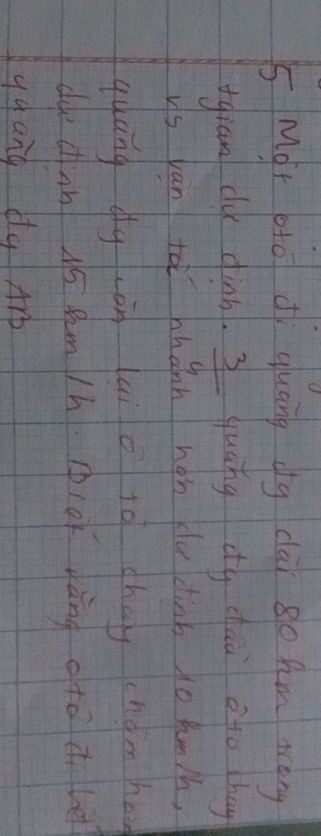 5 Một ôtô đi quãng đg dài 80 km trong
tgian dự định. 3/4 quãng đg đầu ôtô chạy
vs vận tốc nhanh hơn dự định 10 km/h,
quãng đg còn lại ô tô chạy chậm hơn
dự định 15 km/h. Biết rằng ôtô đi hết
quãng đg AB